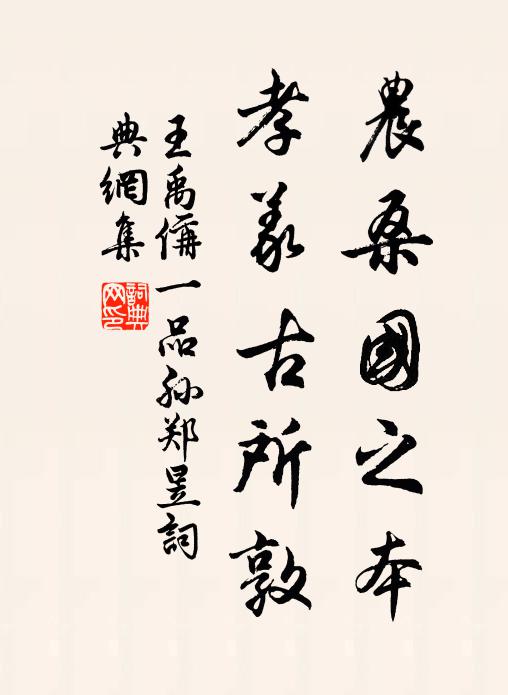 農桑國之本
孝義古所敦
王禹偁一品孙郑昱詞
典網集
詞典
网印